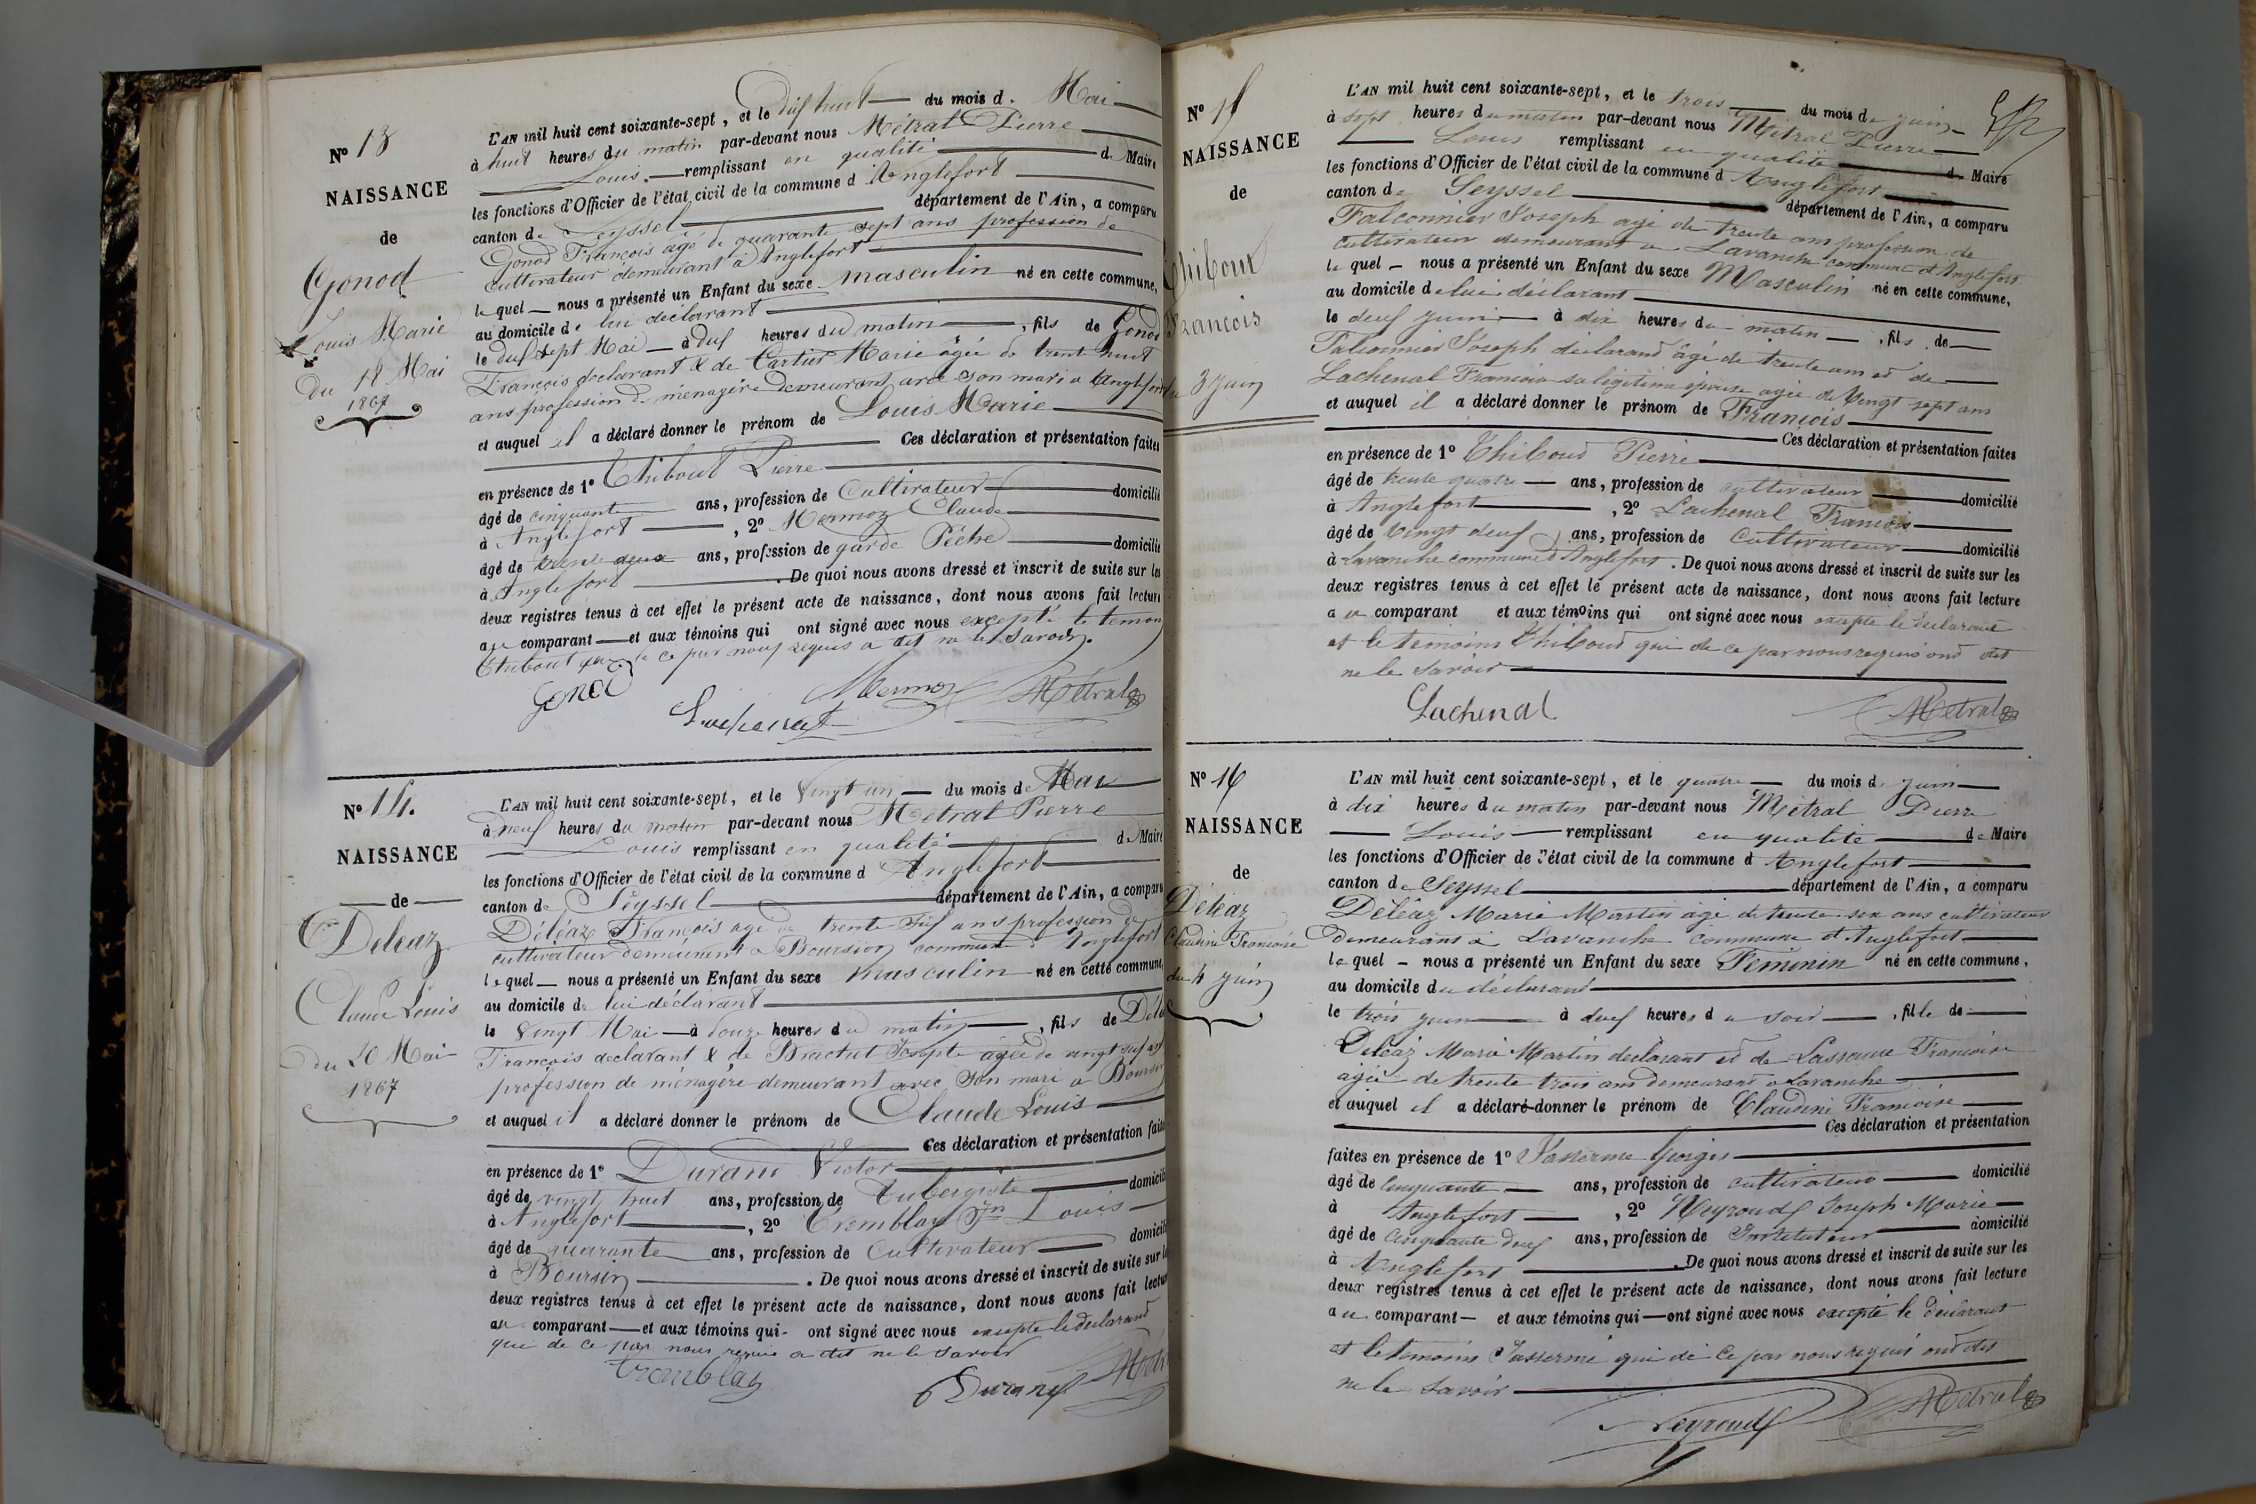 N° 13
NAISSANCE
de
Gonod
Louis Marie
Du 18 Mai
1867
L'AN mil huit cent soixante-sept, et le dix huit du mois d. Mai
à huit heures du matin par-devant nous Métral Pierre
Louis remplissant en qualité de Maire
les fonctions d'Officier de l'état civil de la commune d Anglefort
canton de Seyssel département de l'Ain, a comparu
Gonod François agé de quarante sept ans profession de
cultivateur demeurant à Anglefort
lequel nous a présenté un Enfant du sexe masculin né en cette commune,
au domicile de lui déclarant
le dix sept Mai à dix heures du matin, fils de Gonod
François declarant & de Marie agée de trent huit
ans profession de ménagère demeurant avec son mari a Anglefort
et auquel il a déclaré donner le prénom de Louis Marie
Ces déclaration et présentation faites
en présence de 1° Thibout Pierre
âgé de cinquante ans, profession de Cultivateur domicilié
à Anglefort, 2° Mermoz Claude
âgé de trente deux ans, profession de garde Pêche domicilié
à Anglefort. De quoi nous avons dressé et inscrit de suite sur les
deux registres tenus à cet effet le présent acte de naissance, dont nous avons fait lecture
au comparant et aux témoins qui ont signé avec nous excepté le temoin
Thibout qui de ce par nous requis a dit ne le savoir.
Gonod
Mermoz
Métral
N° 14.
NAISSANCE
de
Deleaz
Claude Louis
du 20 Mai
1867
L'AN mil huit cent soixante-sept, et le Vingt un du mois de Mai
à neuf heures du matin par-devant nous Métral Pierre
Louis remplissant en qualité de Maire
les fonctions d'Officier de l'état civil de la commune d Anglefort
canton de Seyssel département de l'Ain, a comparu
Déléaz François agé de trente six ans profession de
cultivateur demeurant a Boursin commune d'Anglefort
lequel nous a présenté un Enfant du sexe masculin né en cette commune,
au domicile de lui déclarant
le Vingt Mai à douze heures du matin, fils de Délé
François declarant & de Josepte agée de vingt six ans
profession de ménagère demeurant avec son mari a Boursin
et auquel il a déclaré donner le prénom de Claude Louis
Ces déclaration et présentation faites
en présence de 1° Durand Victor
âgé de vingt huit ans, profession de Aubergiste domicilié
à Anglefort, 2° Tremblay Louis
âgé de quarante ans, profession de Cultivateur domicilié
à Boursin. De quoi nous avons dressé et inscrit de suite sur les
deux registres tenus à cet effet le présent acte de naissance, dont nous avons fait lecture
au comparant et aux témoins qui ont signé avec nous excepte le declarant
qui de ce par nous requis a dit ne le savoir
Tremblay
Durand
Métr
N° 15
NAISSANCE
de
Thibout
François
du 3 Juin
L'AN mil huit cent soixante-sept, et le trois du mois de juin
à sept heures du matin par-devant nous Métral Pierre
Louis remplissant en qualité de Maire
les fonctions d'Officier de l'état civil de la commune d Anglefort
canton de Seyssel département de l'Ain, a comparu
Falconnier Joseph agé de trente ans profession de
cultivateur demeurant a Lavanche commune d'Anglefort
lequel nous a présenté un Enfant du sexe Masculin né en cette commune,
au domicile de lui déclarant
le deux juin à dix heures du matin, fils de
Falconnier Joseph declarand âgé de trente ans et de
Lachenal Francoise sa légitime épouse agée de Vingt sept ans
et auquel il a déclaré donner le prénom de François
Ces déclaration et présentation faites
en présence de 1° Thiboud Pierre
âgé de trente quatre ans, profession de cultivateur domicilié
à Anglefort, 2° Lachenal Francois
âgé de Vingt deux ans, profession de Cultivateur domicilié
à Lavanche commune d'Anglefort. De quoi nous avons dressé et inscrit de suite sur les
deux registres tenus à cet effet le présent acte de naissance, dont nous avons fait lecture
au comparant et aux témoins qui ont signé avec nous excepte le declarant
et le temoins Thiboud qui de ce par nous requis ond dit
ne le savoir
Lachenal
Métral
N° 16
NAISSANCE
de
Déléaz
Claudine Francoise
du 4 juin
L'AN mil huit cent soixante-sept, et le quatre du mois de juin
à dix heures du matin par-devant nous Métral Pierre
Louis remplissant en qualité de Maire
les fonctions d'Officier de l'état civil de la commune d Anglefort
canton de Seyssel département de l'Ain, a comparu
Déléaz Marie Martin âgé de trente six ans cultivateur
demeurant à Lavanche commune d'Anglefort
lequel nous a présenté un Enfant du sexe Féminin né en cette commune,
au domicile du déclarant
le trois juin à deux heures du soir, fille de
Déléaz Marie Martin declarant et de Francoise
agée de trente trois ans demeurant a Lavanche
et auquel il a déclaré donner le prénom de Claudine Francoise
Ces déclaration et présentation
faites en présence de 1° Jasserme Gorges
âgé de Cinquante ans, profession de cultivateur domicilié
à Anglefort, 2° Neyroud Joseph Marie
âgé de Cinquante deux ans, profession de Instituteur domicilié
à Anglefort. De quoi nous avons dressé et inscrit de suite sur les
deux registres tenus à cet effet le présent acte de naissance, dont nous avons fait lecture
au comparant et aux témoins qui ont signé avec nous excepté le déclarant
et le témoins Jasserme qui de ce par nous requis ond dit
ne le savoir
Neyroud
Métral